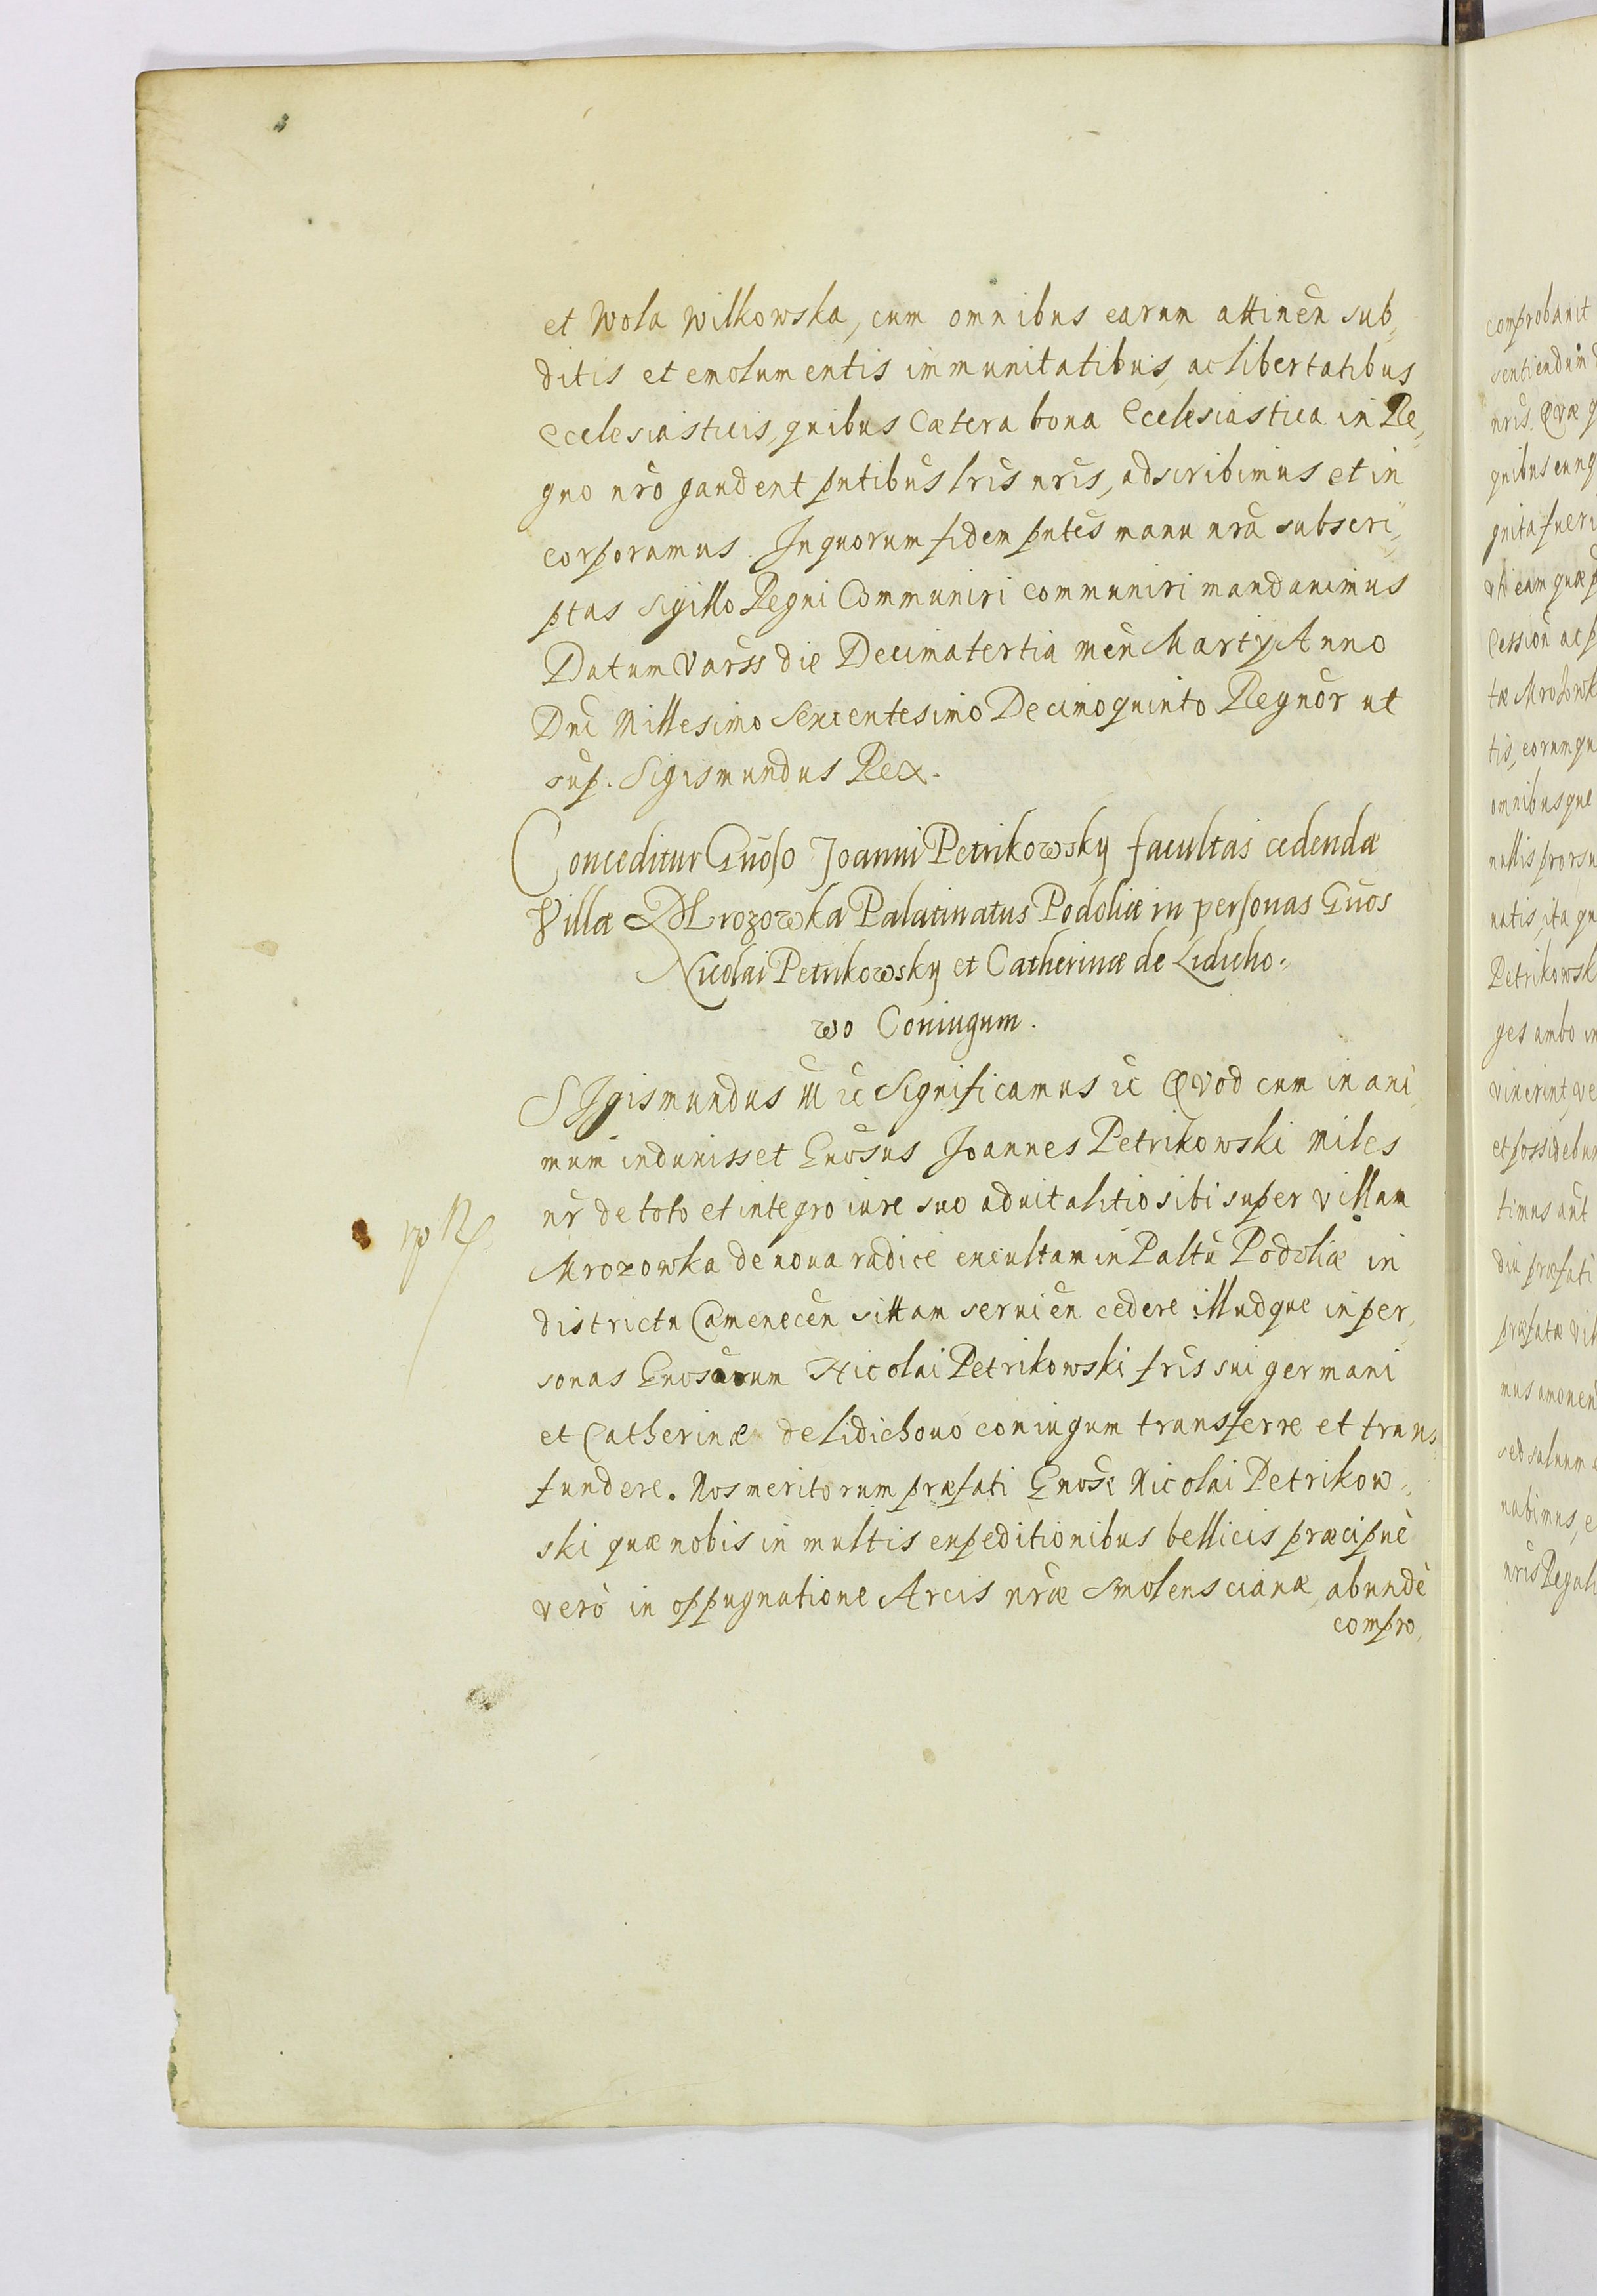 et Wola Wilkowska, cum omnibus earum attineñ sub,
ditis et emolumentis immunitatibus, ac libertatibus
Ecclesiasticis, quibus Cætera bona Ecclesiastica in Re,
gno nr̃o gaudent pn̄tibus lr̃is nr̃is, adscribimus et in
corporamus. In quorum fidem pn̄tes manu nr̃a subscri,,
ptas sigillo Regni Communiri communiri mandauimus
Datum Varss die Decimatertia meñ Martÿ Anno
Dnĩ Millesimo Sexcentesimo Decimoquinto Regnor̃ ut
sup. Sigismundus Rex.
Conceditur Gñoso Joanni Petrikowsky facultas cedendæ
Villæ Mrozowka Palatinatus Podoliæ in personas Gños
Nicolai Petrikowsky et Catherinæ de Lidicho=
wo Coniugum.
SIgismundus III ꝛc Significamus ꝛc QVod cum in ani,
mum induxisset Gñosus Joannes Petrikowski Miles
nr̃ de toto et integro iure suo aduitalitio sibi super villam
Mrozowka de noua radice excultam in Paltũ Podoliæ in
districtu Cameneceñ sittam seruieñ cedere illudque in per,
sonas Gñosarum Nicolai Petrikowski fr̃is sui germani
et Catherinæ de Lidichouo coniugum transferre et trans
fundere. Nos meritorum præfati Gñosi Nicolai Petrikow,
ski quæ nobis in multis expeditionibus bellicis præcipuè
verò in oppugnatione Arcis nr̃æ Smolenscianæ, abundè
compro,
comprobauit
sentiendum
nris. Qvæ q
quibus cunq
quita fueri
vti eam quæ p
Cession ac p
tæ Mrozowk
tis, eorumqu
omnibusque
nullis prorsu
natis, ita qu
Petrikowsk
ges ambo in
vixerint, ve
et possidebun
timus aut
diu præfati
præfatæ vil
mus amouen
sed saluum
uabimus, e
nris Regali